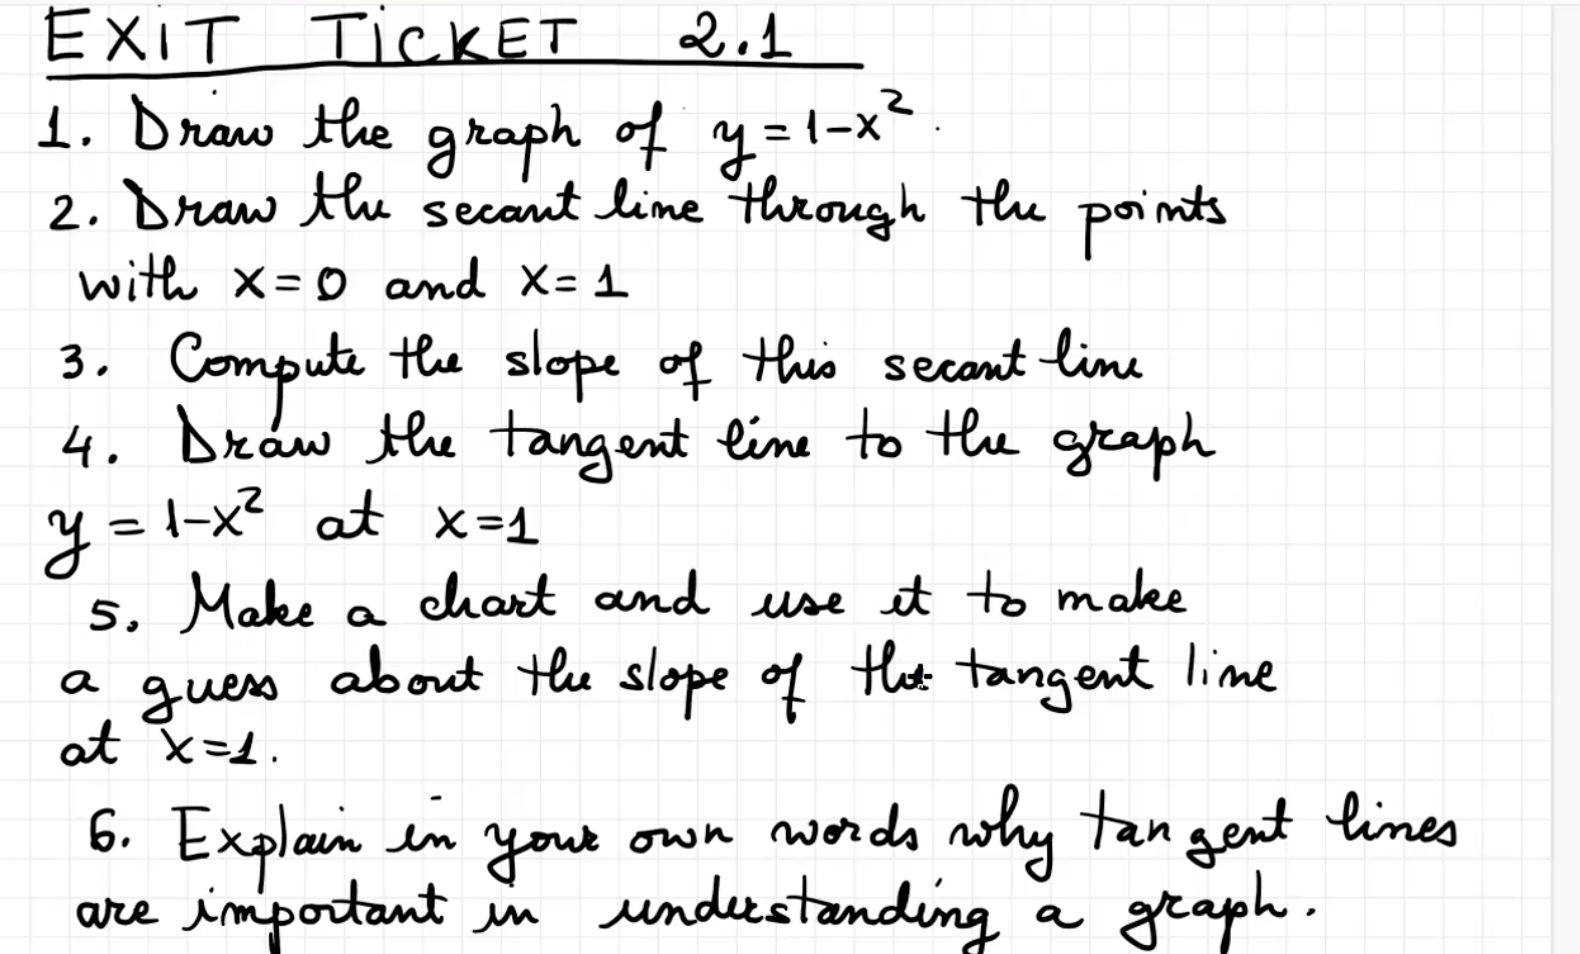 EXIT TICKET 2.1
1. Draw the graph of y = 1-x²
2. Draw the secant line through the points
with x=0 and x=1
3. Compute the slope of this secant line
4. Draw the tangent line to the graph
y = 1-x² at x=1
5. Make a chart and use it to make
a guess about the slope of the tangent line
at x=1.
6. Explain in your own words why tangent lines
are important in understanding a graph.